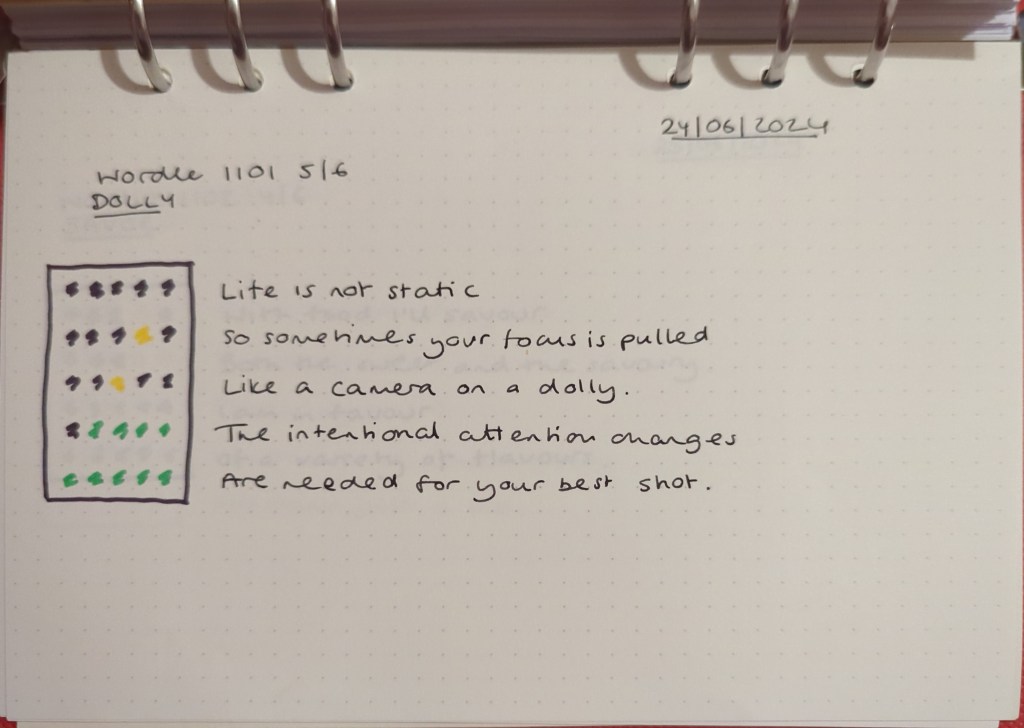 24/06/2024
Wordle 1101 5/6
DOLLY
Life is not static
So sometimes your focus is pulled
Like a camera on a dolly.
The intentional attention changes
Are needed for your best shot.